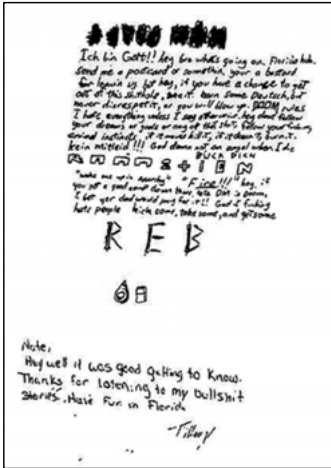 Ich bin Gott!! hey bro what's going on, Florida huh.
send me a postcard or somethin, your a bastard
for leavin us but hey, if you have a chance to get
out of this shithole, use it. learn some Deutsch, but
never disrespect it, or you will blow up. DOOM rules
I hate everything unless I say otherwise. hey dont follow
your dreams or goals or any of that shit, follow your fucking
animal instincts, if it moves kill it, if it doesn't burn it.
kein mitleid!!! God damn not an angel when I die
"wake me up in anarchy" "Fire!!!" hey, if
you get a good comp down there, tele DM is DOOM,
I bet yer dad would pay for it!! God I fucking
hate people kick some, take some, and get some
R E B
Note,
Hey well it was good getting to know.
Thanks for listening to my bullshit
stories. Have fun in Florida
-Tiffany